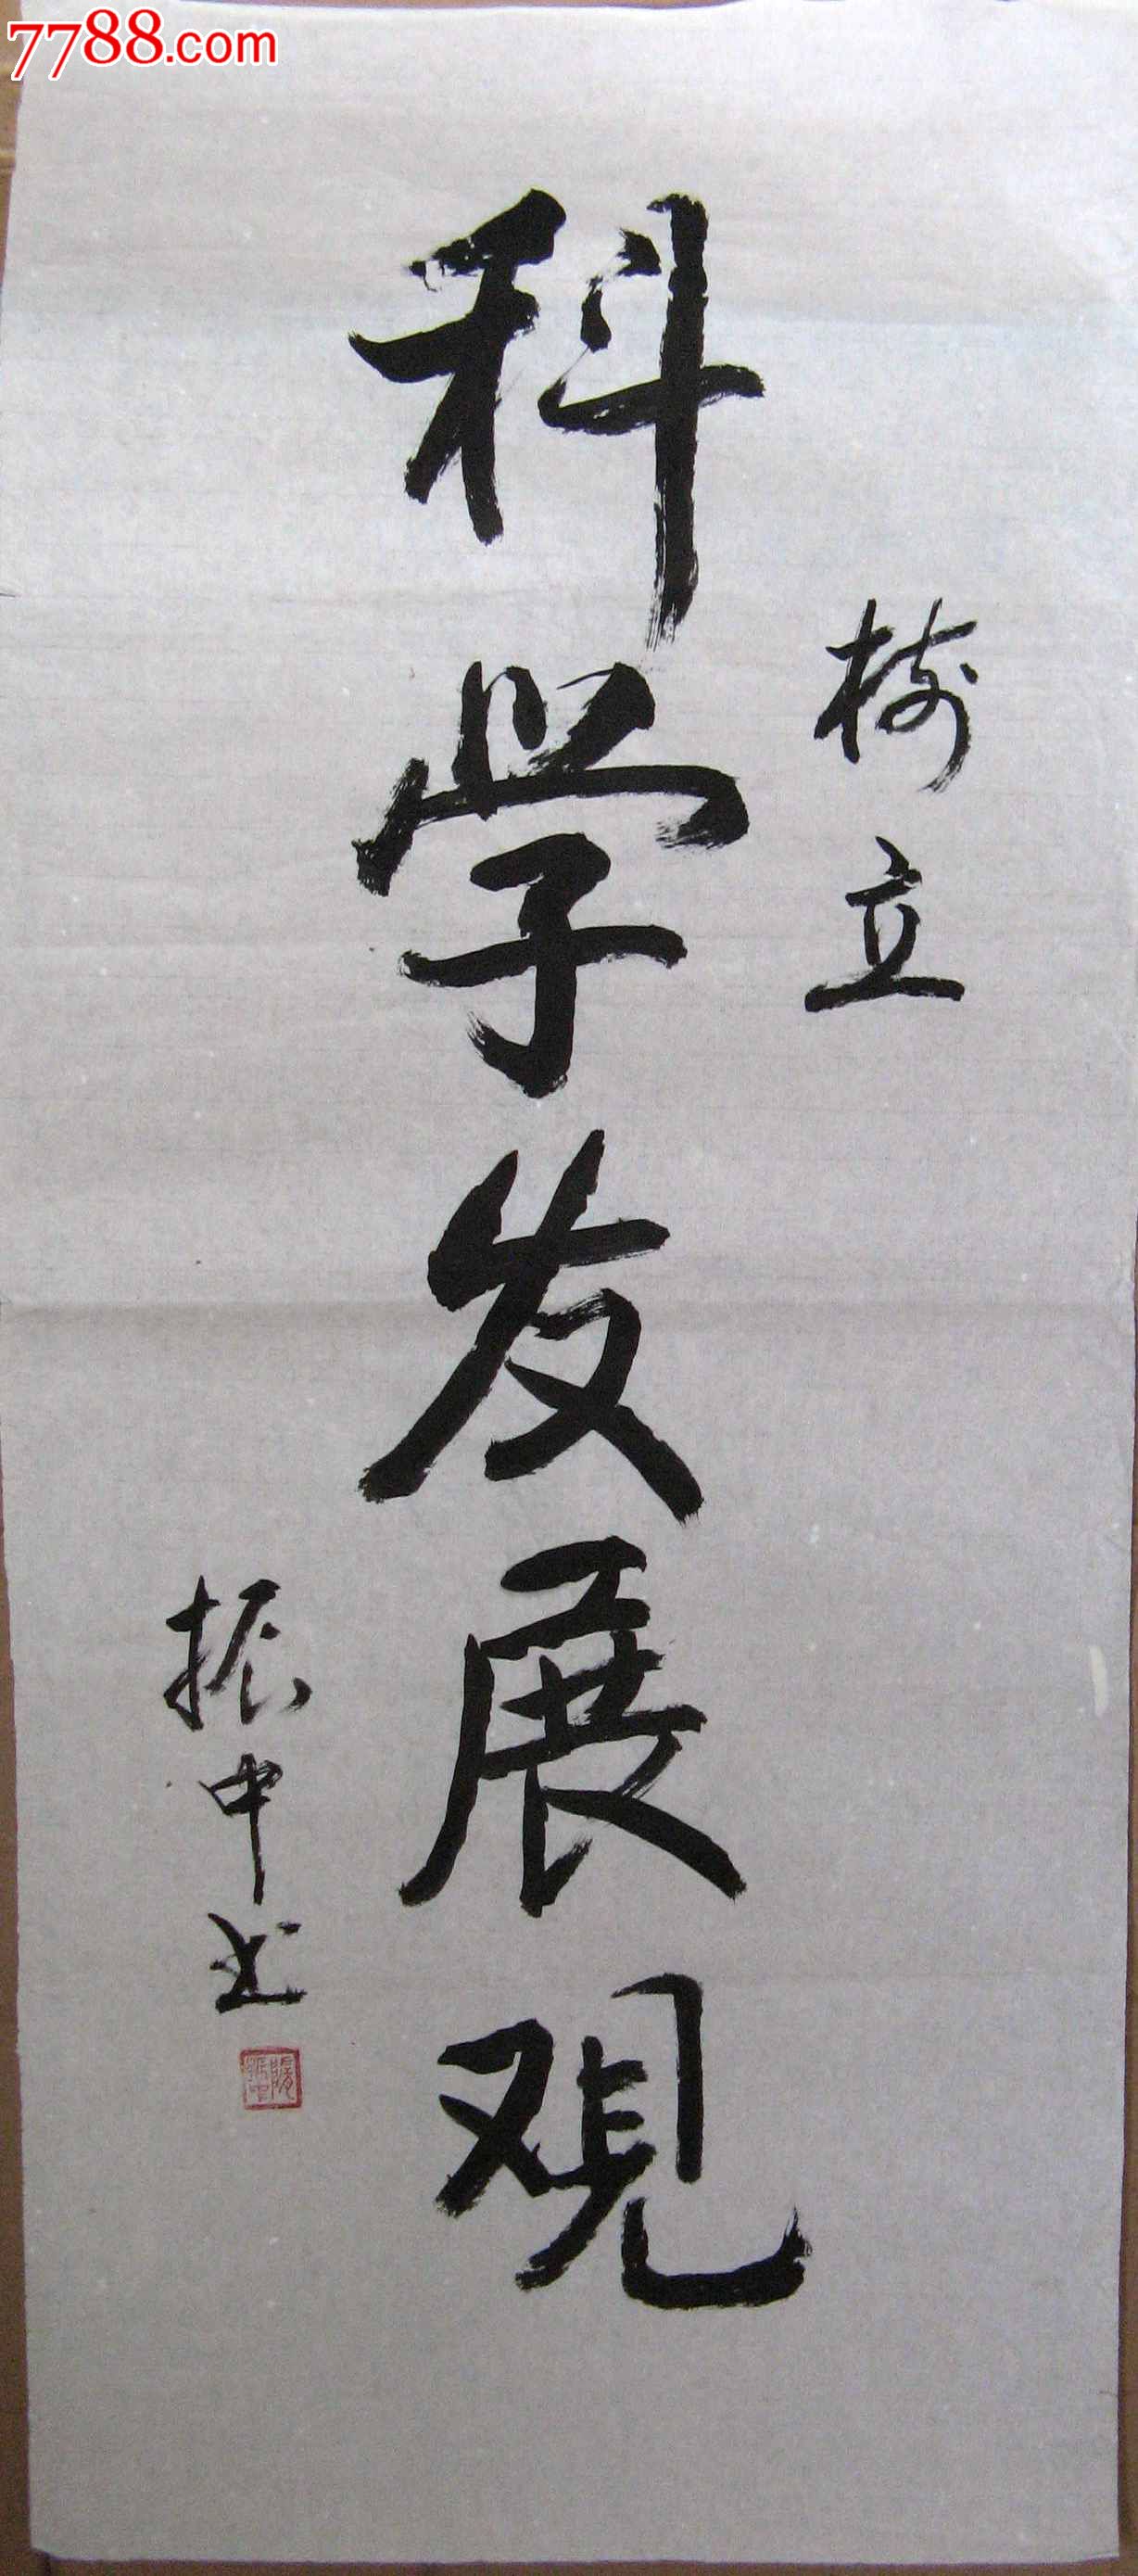 7788.com
树立
科学发展观
振中书